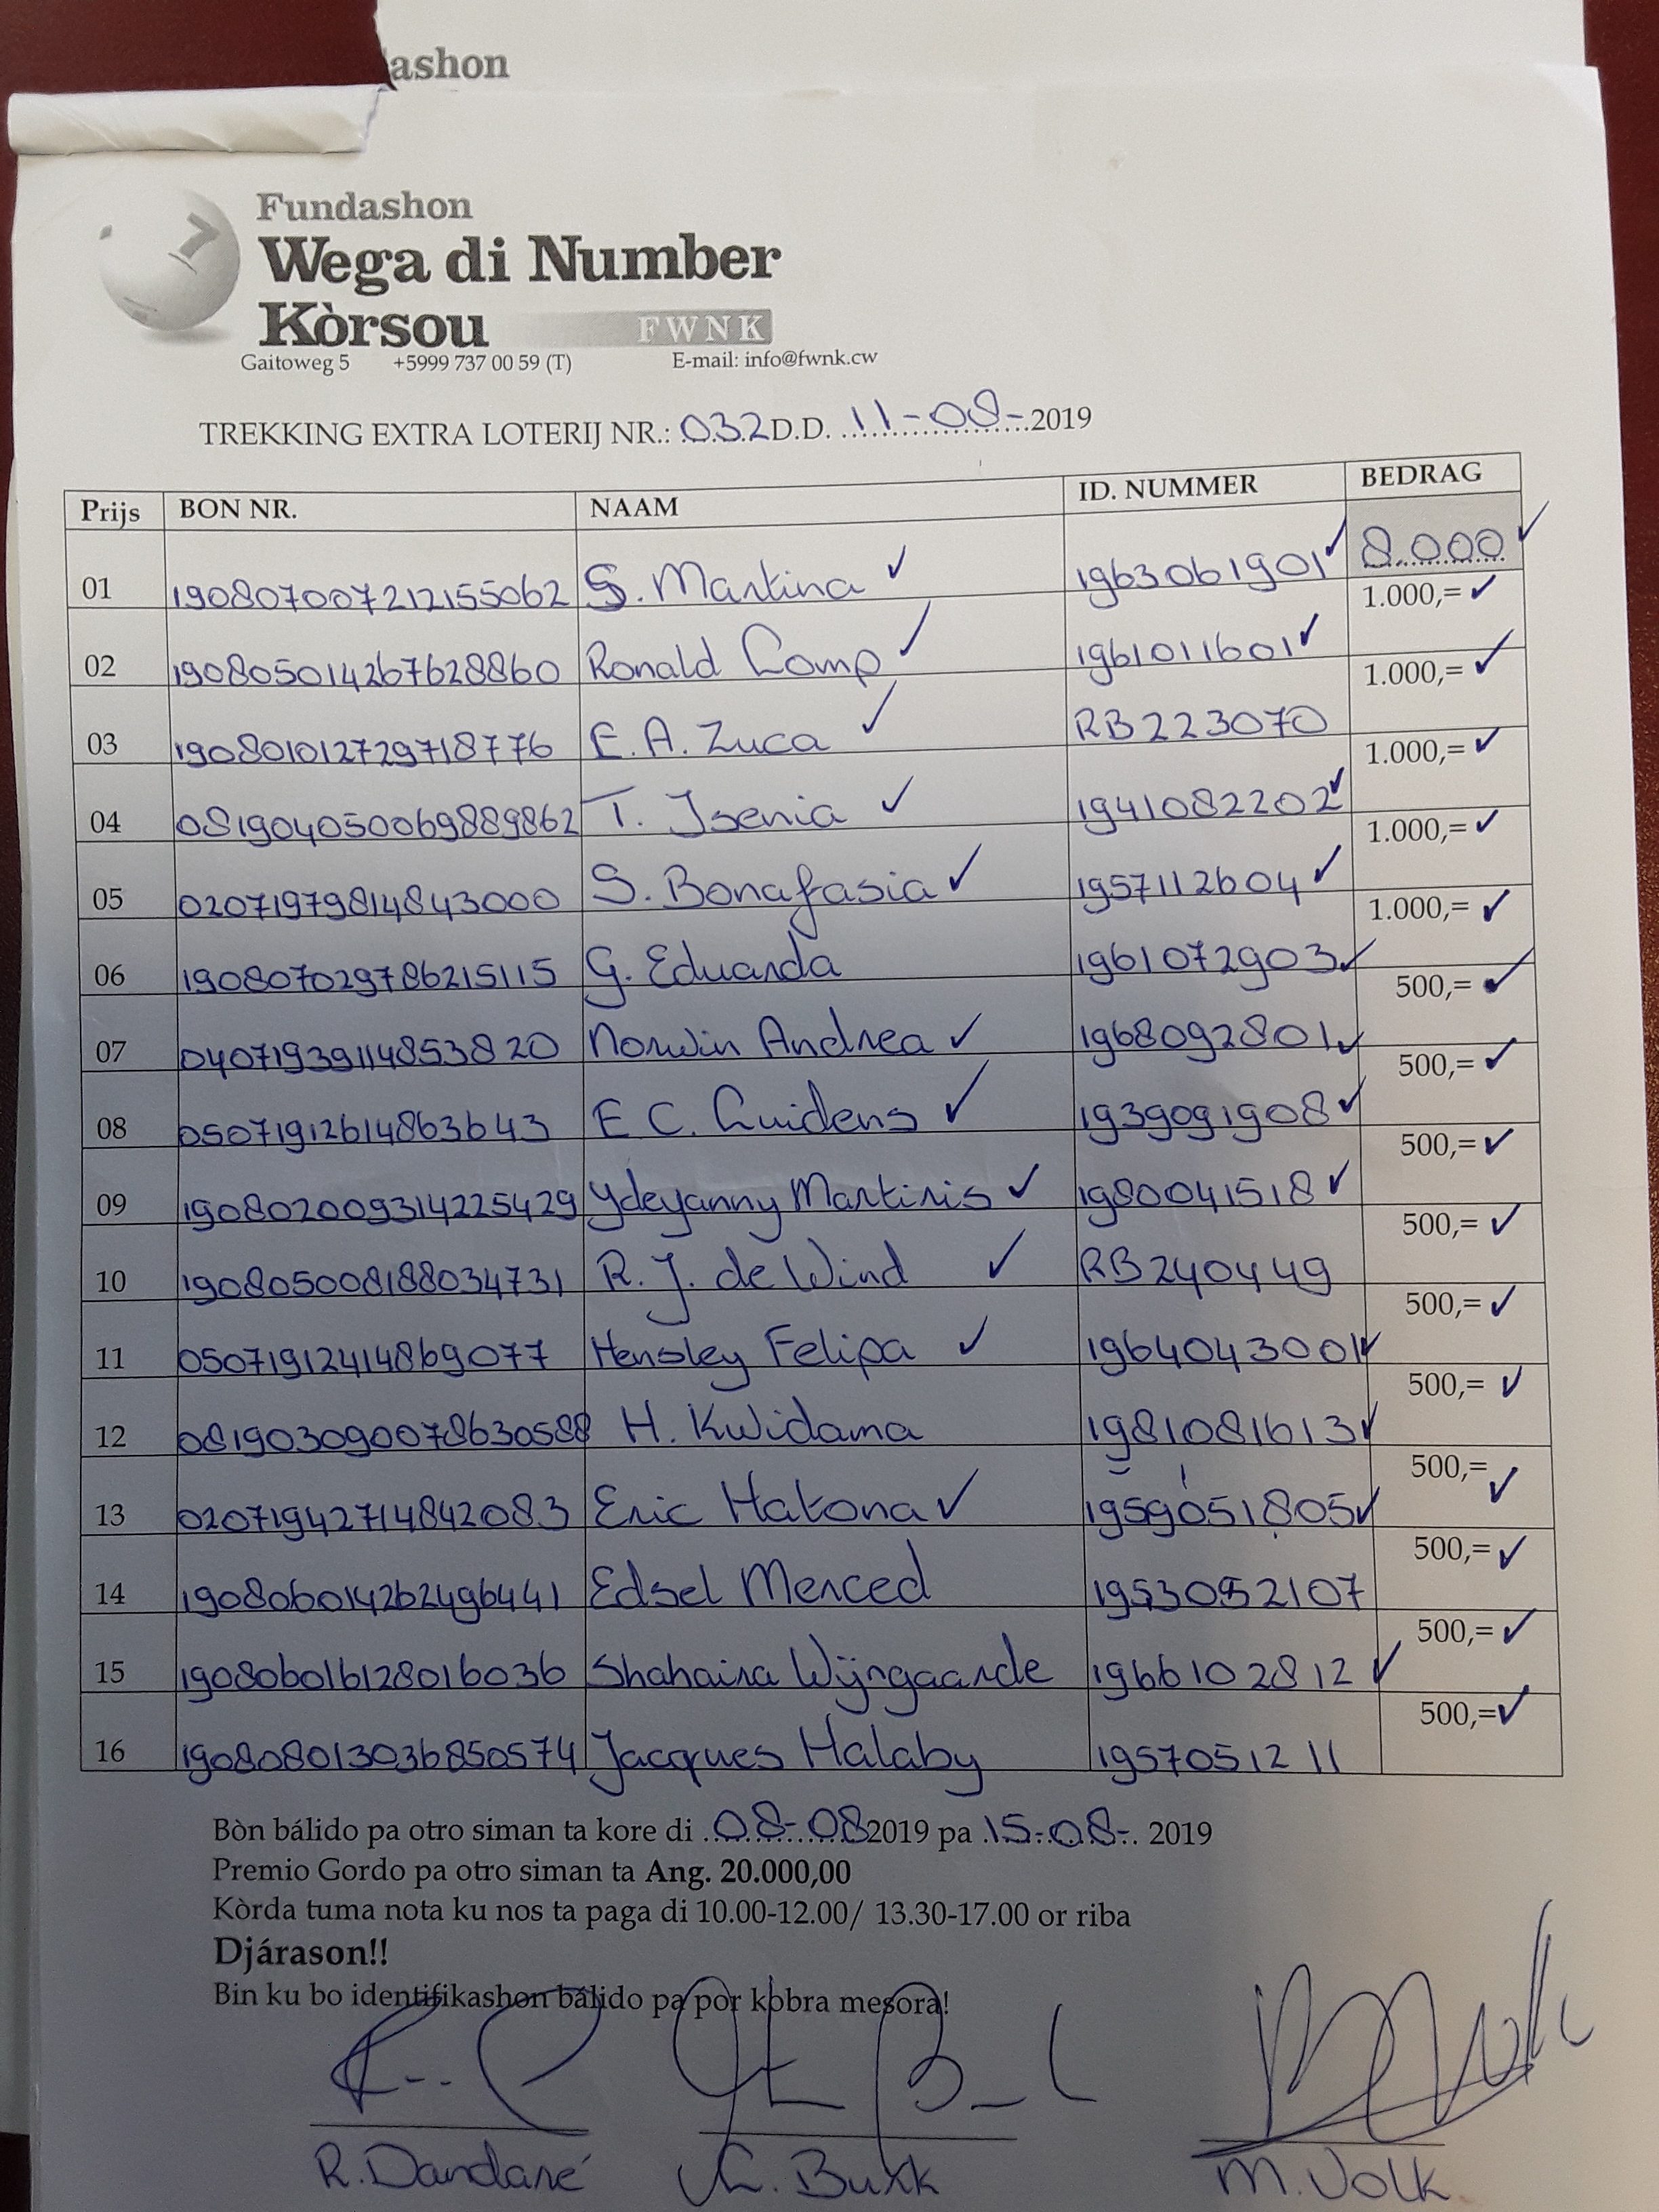 ashon
7
Fundashon
Wega di Number
Kòrsou FWNK
Gaitoweg 5 +5999 737 00 59 (T) E-mail: info@fwnk.cw
TREKKING EXTRA LOTERIJ NR.: 032 D.D. 11-08-2019
Prijs BON NR. NAAM ID. NUMMER BEDRAG
01 190807007212155062 S. Martina ✓ 1963061901 ✓ 8.000 ✓
02 190805014267628860 Ronald Comp ✓ 1961011601 ✓ 1.000,= ✓
03 190801012729718776 E. A. Zuca ✓ RB223070 1.000,= ✓
04 081904050069889862 T. Isenia ✓ 1941082202 ✓ 1.000,= ✓
05 02071979814843000 S. Bonafasia ✓ 1957112604 ✓ 1.000,= ✓
06 190807029786215115 G. Eduarda 1961072903 ✓ 1.000,= ✓
07 04071939114853820 Norwin Andrea ✓ 1968092801 ✓ 500,= ✓
08 05071912614863643 E C. Guidens ✓ 1939091908 ✓ 500,= ✓
09 190802009314225429 Ydeyanny Martinis ✓ 1980041518 ✓ 500,= ✓
10 190805008188034731 R. J. de Wind ✓ RB240449 500,= ✓
11 05071912414869077 Hensley Felipa ✓ 1964043001 ✓ 500,= ✓
12 081903090078630588 H. Kwidama 1981081613 ✓ 500,= ✓
13 02071942714842083 Eric Hatona ✓ 1959051805 ✓ 500,= ✓
14 190806014262496441 Edsel Merced 1953052107 500,= ✓
15 190806016128016036 Shahaira Wijngaarde 1966102812 ✓ 500,= ✓
16 190808013036850574 Jacques Halaby 1957051211 500,= ✓
Bòn bálido pa otro siman ta kore di 08-08 2019 pa 15-08-. 2019
Premio Gordo pa otro siman ta Ang. 20.000,00
Kòrda tuma nota ku nos ta paga di 10.00-12.00/ 13.30-17.00 or riba
Djárason!!
Bin ku bo identifikashon bálido pa por kobra mesora!
R. Dandaré Burk M. Volk